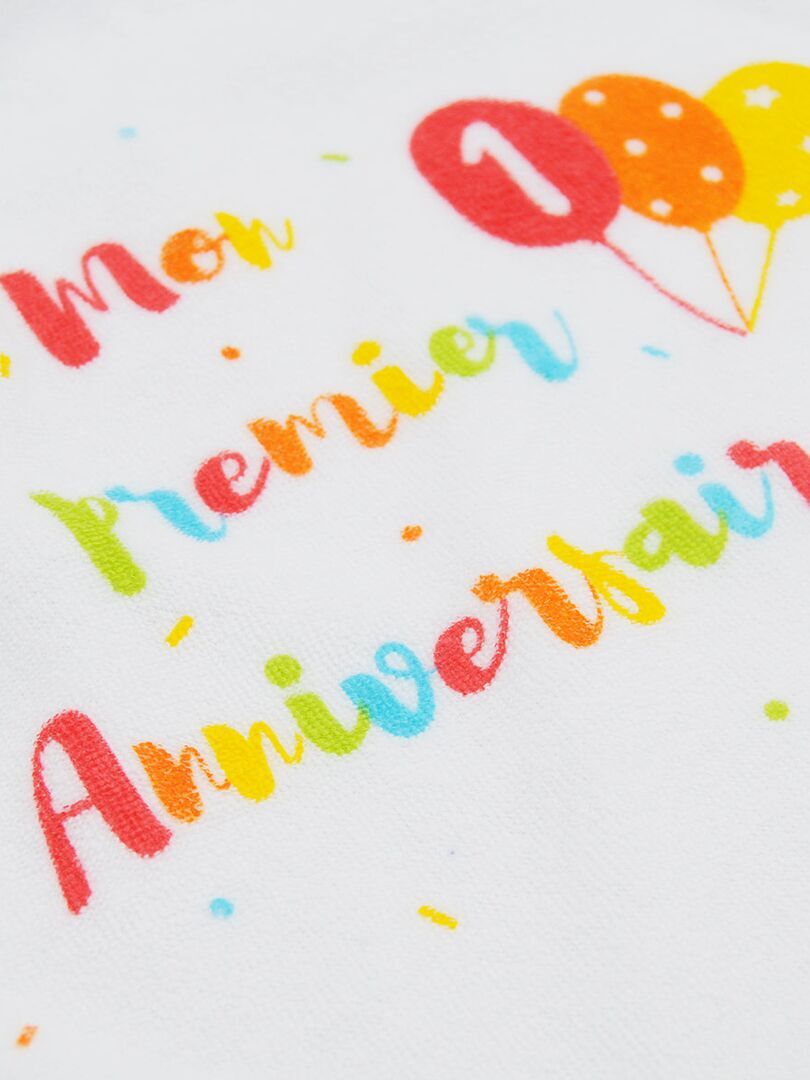 1
Mon
premier
Anniversair